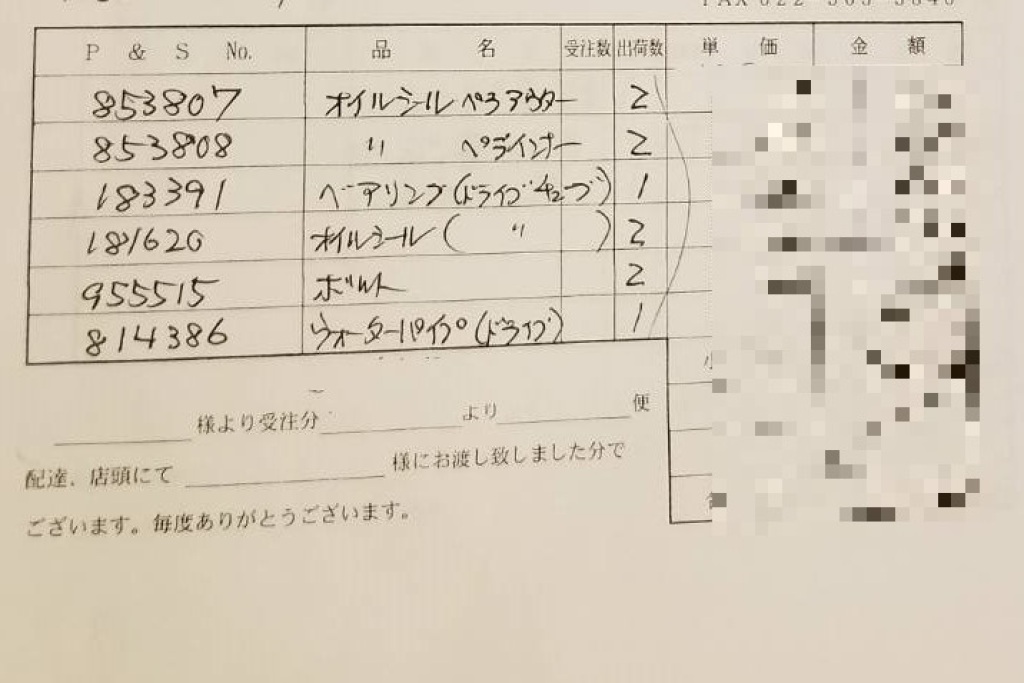 P & S No. 品名 受注数 出荷数 単価 金額
853807 オイルシール ペラアウター 2
853808 〃 ペラインナー 2
183391 ベアリング(ドライブチューブ) 1
181620 オイルシール( 〃 ) 2
955515 ボルト 2
814386 ウォーターパイプ(ドライブ) 1
様より受注分 より 便
配達．店頭にて 様にお渡し致しました分で
ございます。毎度ありがとうございます。